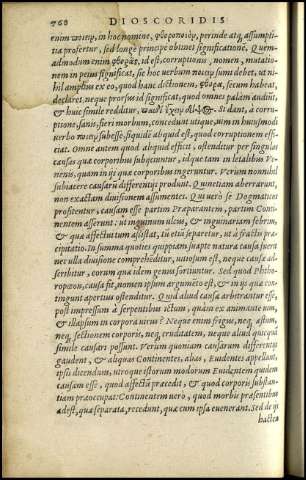 768 DIOSCORIDIS
enim ποιεῖν, in hoc nomine, φθοροποιὸν, perinde atq; assumpti-
tia profertur, sed longè principe obtinet significationē. Quem-
admodum enim φθορᾶς, id est, corruptionis, nomen, mutatio-
nem in peius significat, sic hoc verbum ποιεῖν sumi debet, ut ni-
hil amplius ex eo, quod hanc dictionem, φθορᾶς, secum habeat,
declaret: neque prorsus id significat, quod omnes palàm audiūt,
& huic simile redditur, Si dant, à corru-
ptione, sanis, fieri morbum, concedunt utique, vim in huiusmodi
verbo ποιεῖν subesse: siquidē aliquid est, quod corruptionem effi-
ciat. Omne autem quod aliquid efficit, ostenditur per singulas
causas quæ corporibus subijciuntur, idque tam in letalibus Ve-
nenis, quam in ijs quæ corporibus ingeruntur. Verùm nonnihil
subiacere causarū differentijs prodūt. Quinetiam aberrarunt,
non exactam diuisionem assumentes. Qui verò se Dogmaticos
profitentur, causam esse partim Præparantem, partim Conti-
nentem asserunt: ut inguinum ulcus, & inguinariam febrem,
& quæ affectui tum assistat, tū etiā separetur, ut à fractis præ-
cipitatio. In summa quoties quippiam suapte natura causa fuerit,
nec ulla diuisione comprehēditur, vitiosum est, neque causa ad-
scribitur, eorum quæ idem genus sortiuntur. Sed quod Phtho-
ropœon, causa sit, nomen ipsum argumēto est, & in ijs quæ con-
tingunt apertius ostenditur. Quid aliud causa arbitrantur esse,
post impressum à serpentibus ictum, quàm ex animante
& illapsum in corpora virus? Neque enim frigus, neq; æstum,
neq; sectionem corporis, neq; cruditatem, neque aliud quicquā
simile causari possunt. Verùm quoniam causarum differentijs
gaudent, & aliquas Continentes, alias, Euidentes appellant,
ipsi dicendum, utroque istorum modorum Euidentem quidem
causam esse, quod affectū præcedit, & quod corporis substan-
tiam præoccupat: Continentem verò, quod morbis præsentibus
adest, quæ separata, recedunt, quæ cum ipsa euenerant. Sed de ijs
hactenus